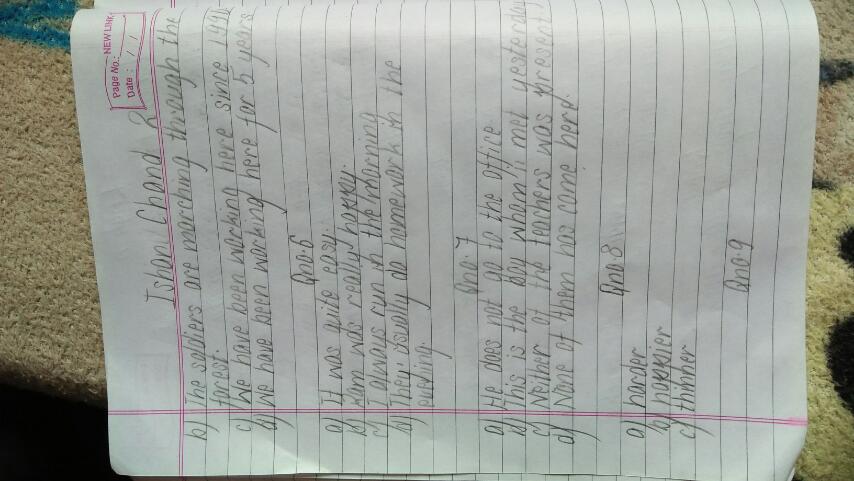 NEW LINK
Page No.:
Date: / /
Ishan Chand R
b) The soldiers are marching through the
forest.
c) We have been working here since
d) We have been working here for 5 years
Qno.6
a) It was quite easy.
b) Ram was really happy.
c) I always run in the morning
d) They usually do homework in the
evening.
Qno.7
a) He does not go to the office.
b) This is the boy whom I met yesterday
c) Neither of the teachers was present
d) None of them has come here.
Qno.8
a) harder
b) happier
c) thinner
Qno.9